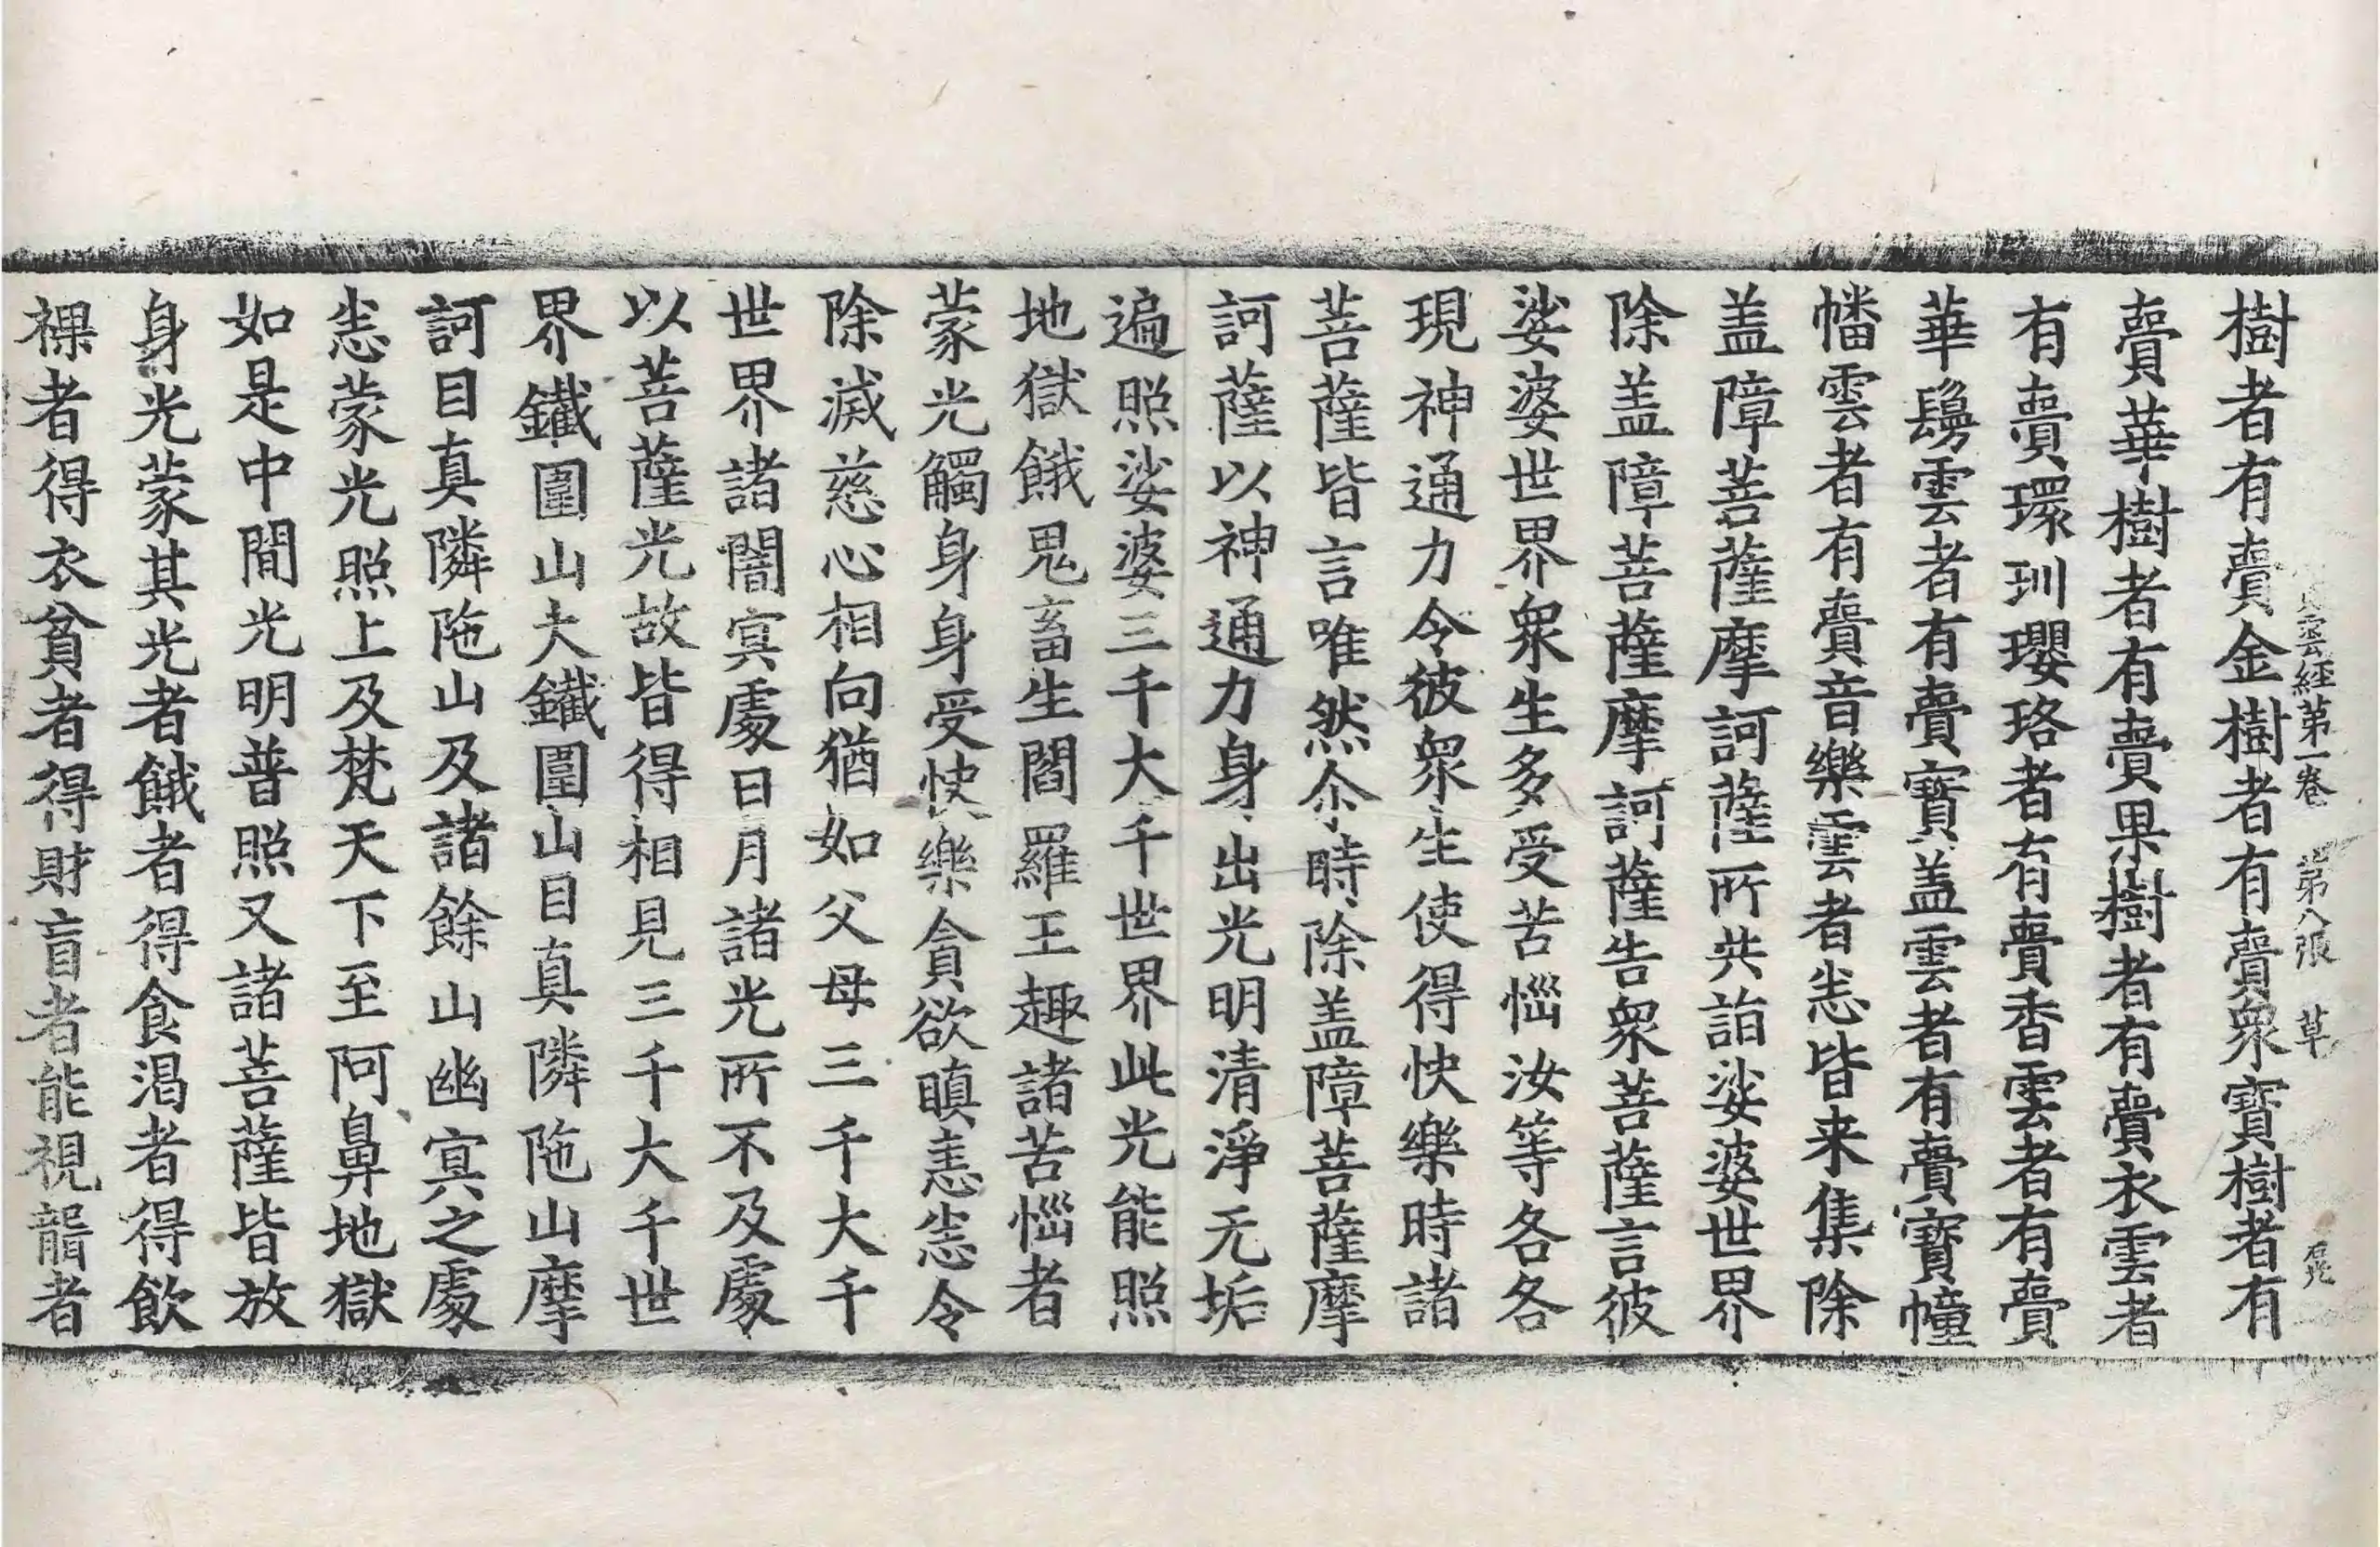 樹者有賷金樹者有賷衆寳樹者有
雲經苐一卷 苐八張 草
賷華樹者有賷果樹者有賷衣雲者
有賷環玔瓔珞者有賷香雲者有賷
華鬘雲者有賷寳盖雲者有賷寳幢
幡雲者有賷音樂雲者悉皆来集除
盖障菩薩摩訶薩所共詣娑婆世界
除盖障菩薩摩訶薩告衆菩薩言彼
娑婆世界衆生多受苦惱汝等各各
現神通力令彼衆生使得快樂時諸
菩薩皆言唯然尒時除盖障菩薩摩
訶薩以神通力身出光明清淨无垢
遍照娑婆三千大千世界此光能照
地獄餓鬼畜生閻羅王趣諸苦惱者
蒙光觸身身受快樂貪欲瞋恚悉令
除滅慈心相向猶如父母三千大千
世界諸闇㝠處日月諸光所不及處
以菩薩光故皆得相見三千大千世
界鐵圍山大鐵圍山目真隣陁山摩
訶目真隣陁山及諸餘山幽㝠之處
悉蒙光照上及梵天下至阿鼻地獄
如是中間光明普照又諸菩薩皆放
身光蒙其光者餓者得食渴者得飲
裸者得衣貧者得財盲者能視聾者